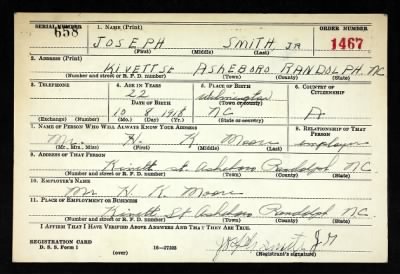 SERIAL NUMBER 1. NAME (Print) ORDER NUMBER
658 JOSEPH SMITH JR 1467
(First) (Middle) (Last)
2. ADDRESS (Print)
KIVETT ST ASHEBORO RANDOLPH NC
(Number and street or R. F. D. number) (Town) (County) (State)
3. TELEPHONE 4. AGE IN YEARS 5. PLACE OF BIRTH 6. COUNTRY OF CITIZENSHIP
22 Wilmington
(Town or county)
DATE OF BIRTH
10 8 1918 NC
(Exchange) (Number) (Mo.) (Day) (Yr.) (State or country)
7. NAME OF PERSON WHO WILL ALWAYS KNOW YOUR ADDRESS 8. RELATIONSHIP OF THAT PERSON
Mr. H K Moore employer
(Mr., Mrs., Miss) (First) (Middle) (Last)
9. ADDRESS OF THAT PERSON
Kivett St. Asheboro Randolph NC.
(Number and street or R. F. D. number) (Town) (County) (State)
10. EMPLOYER'S NAME
Mr H. K. Moore
11. PLACE OF EMPLOYMENT OR BUSINESS
Kivett St Asheboro Randolph NC.
(Number and street or R. F. D. number) (Town) (County) (State)
I AFFIRM THAT I HAVE VERIFIED ABOVE ANSWERS AND THAT THEY ARE TRUE.
REGISTRATION CARD
D. S. S. Form 1 (over) 16—17105 (Registrant's signature)